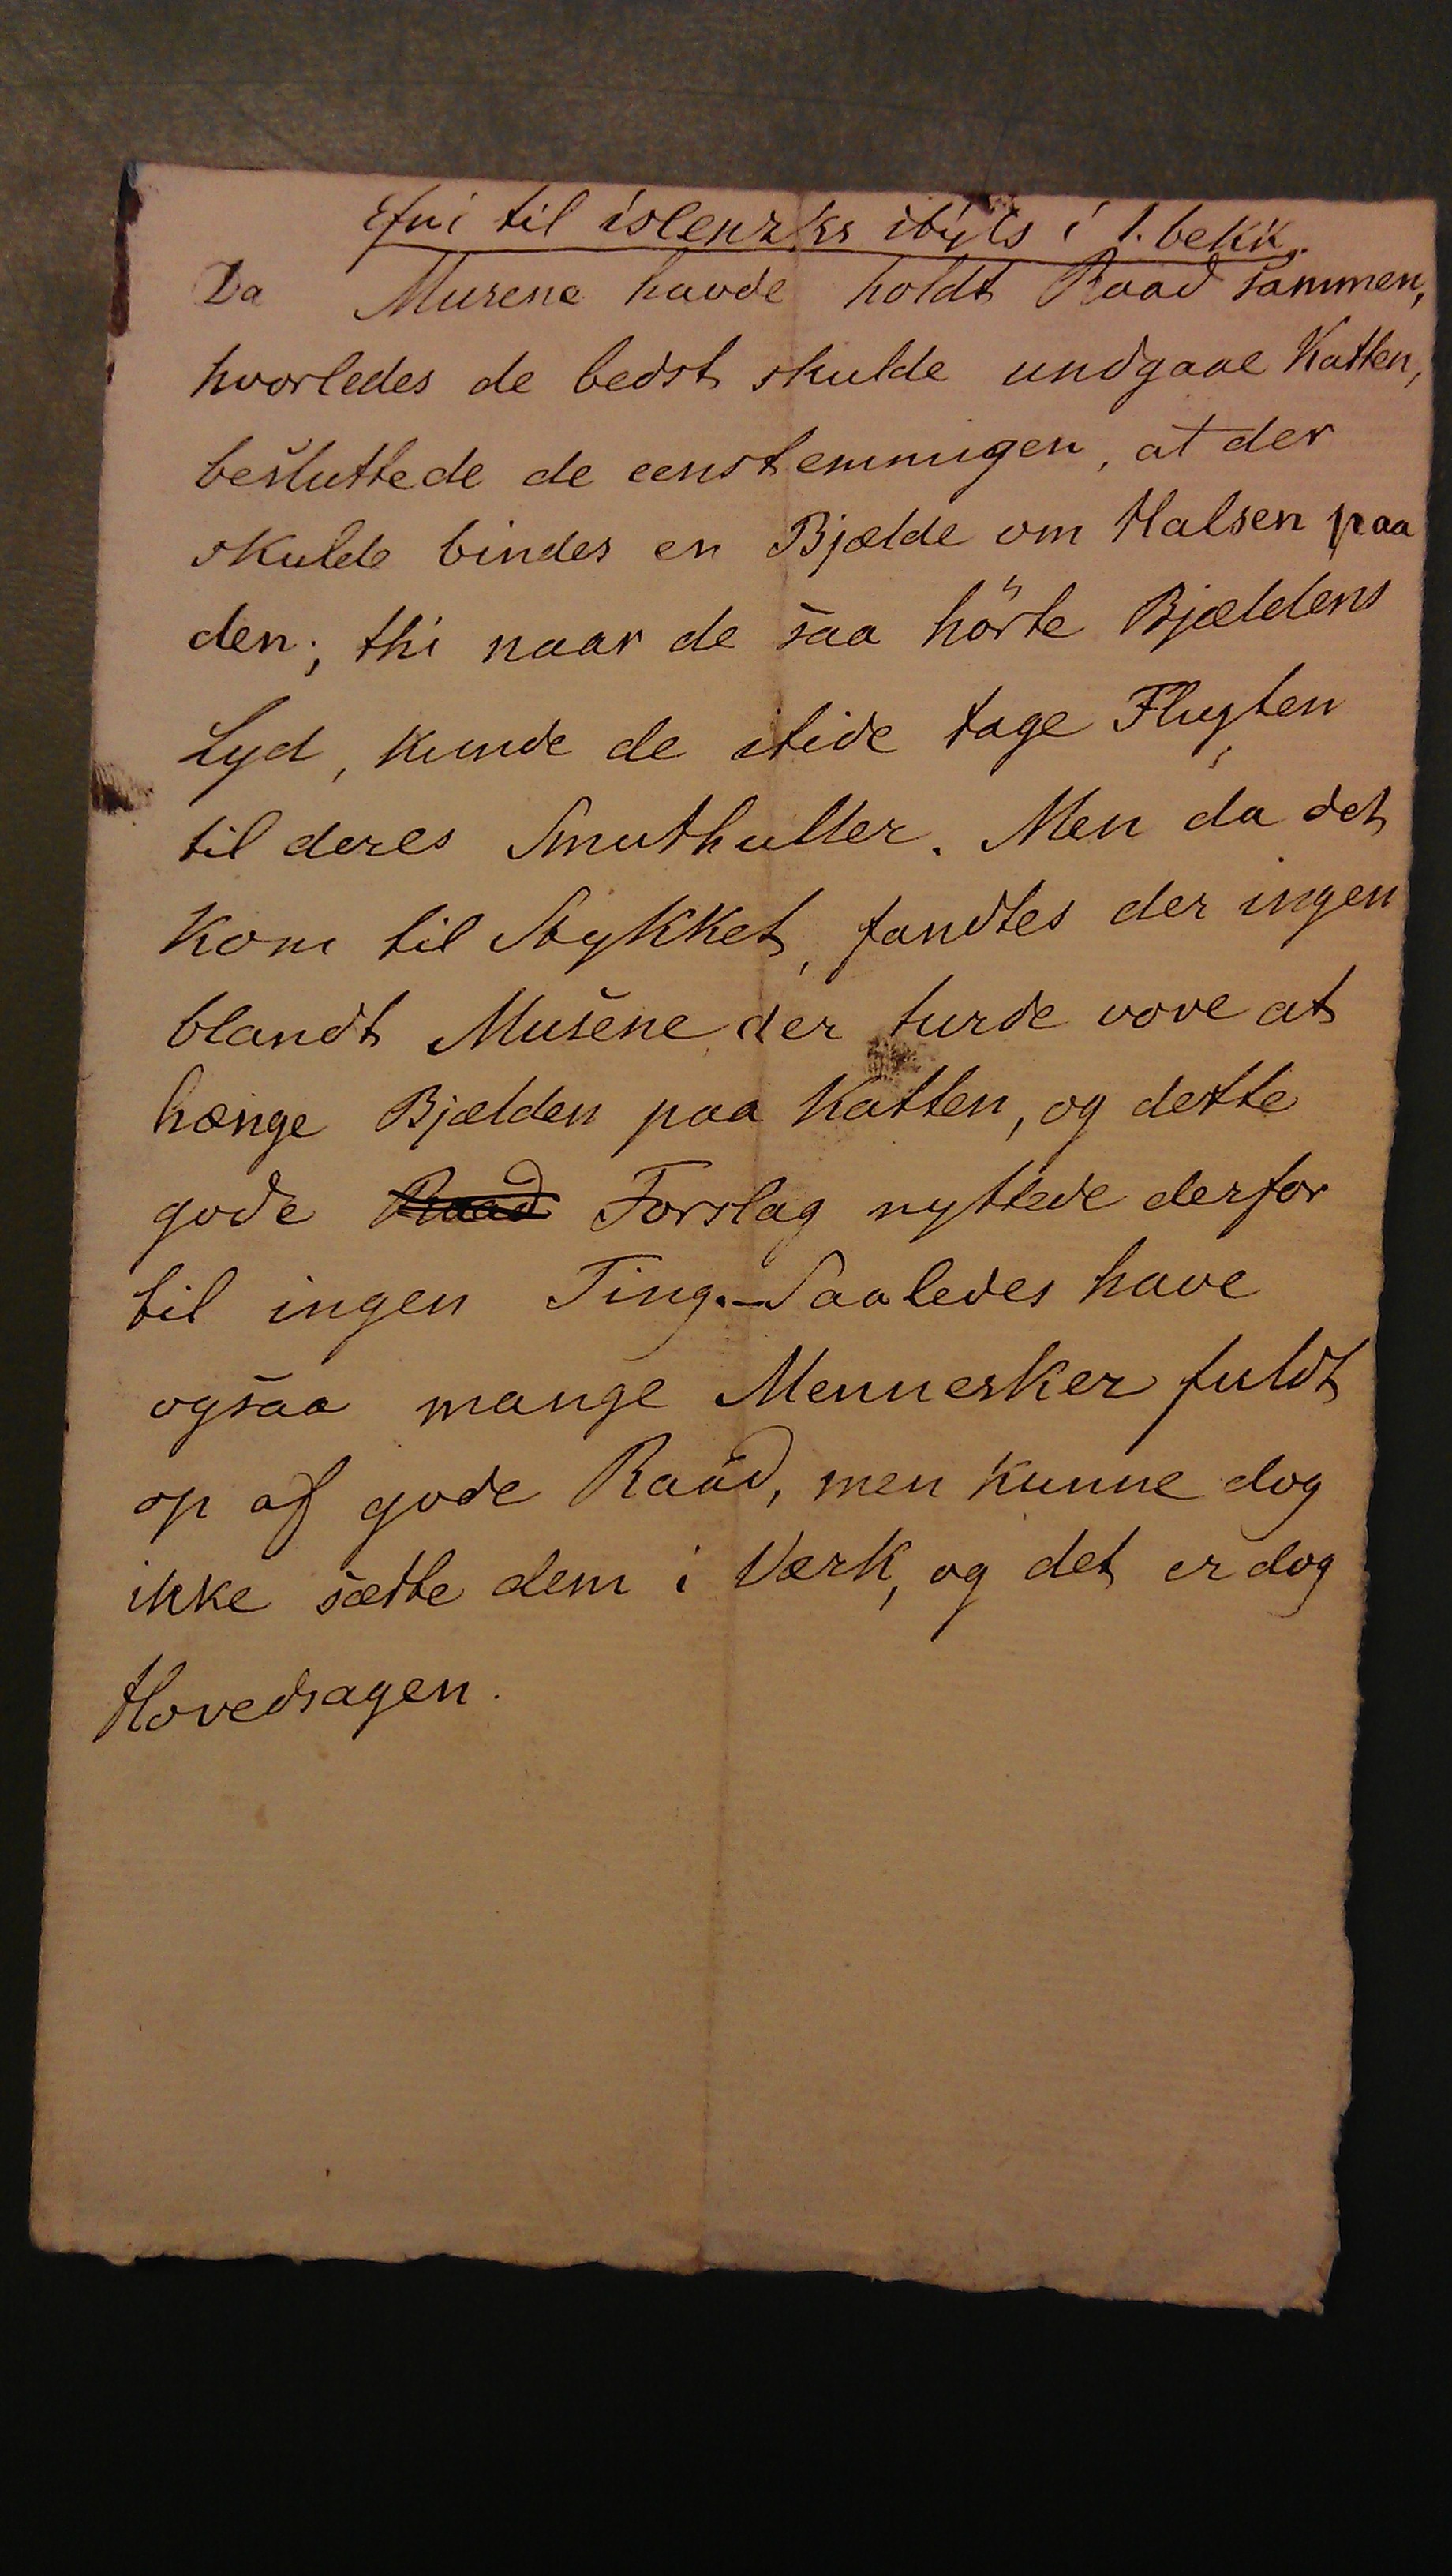 Efni til íslenzks stýls í 1. bekk.
Da Musene havde holdt Raad sammen,
hvorledes de bedst skulde undgaae Katten,
besluttede de eenstemmigen, at der
skulde bindes en Bjælde om Halsen paa
den; thi naar de saa hörte Bjældens
Lyd, kunde de itide tage Flugten
til deres Smuthuller. Men da det
kom til Stykket, fandtes der ingen
blandt Musene, der turde vove at
hænge Bjælden paa Katten, og dette
gode Raad Forslag nyttede derfor
til ingen Ting.—Saaledes have
ogsaa mange Mennesker fuldt
op af gode Raad, men kunne dog
ikke sætte dem i Værk, og det er dog
Hovedsagen.